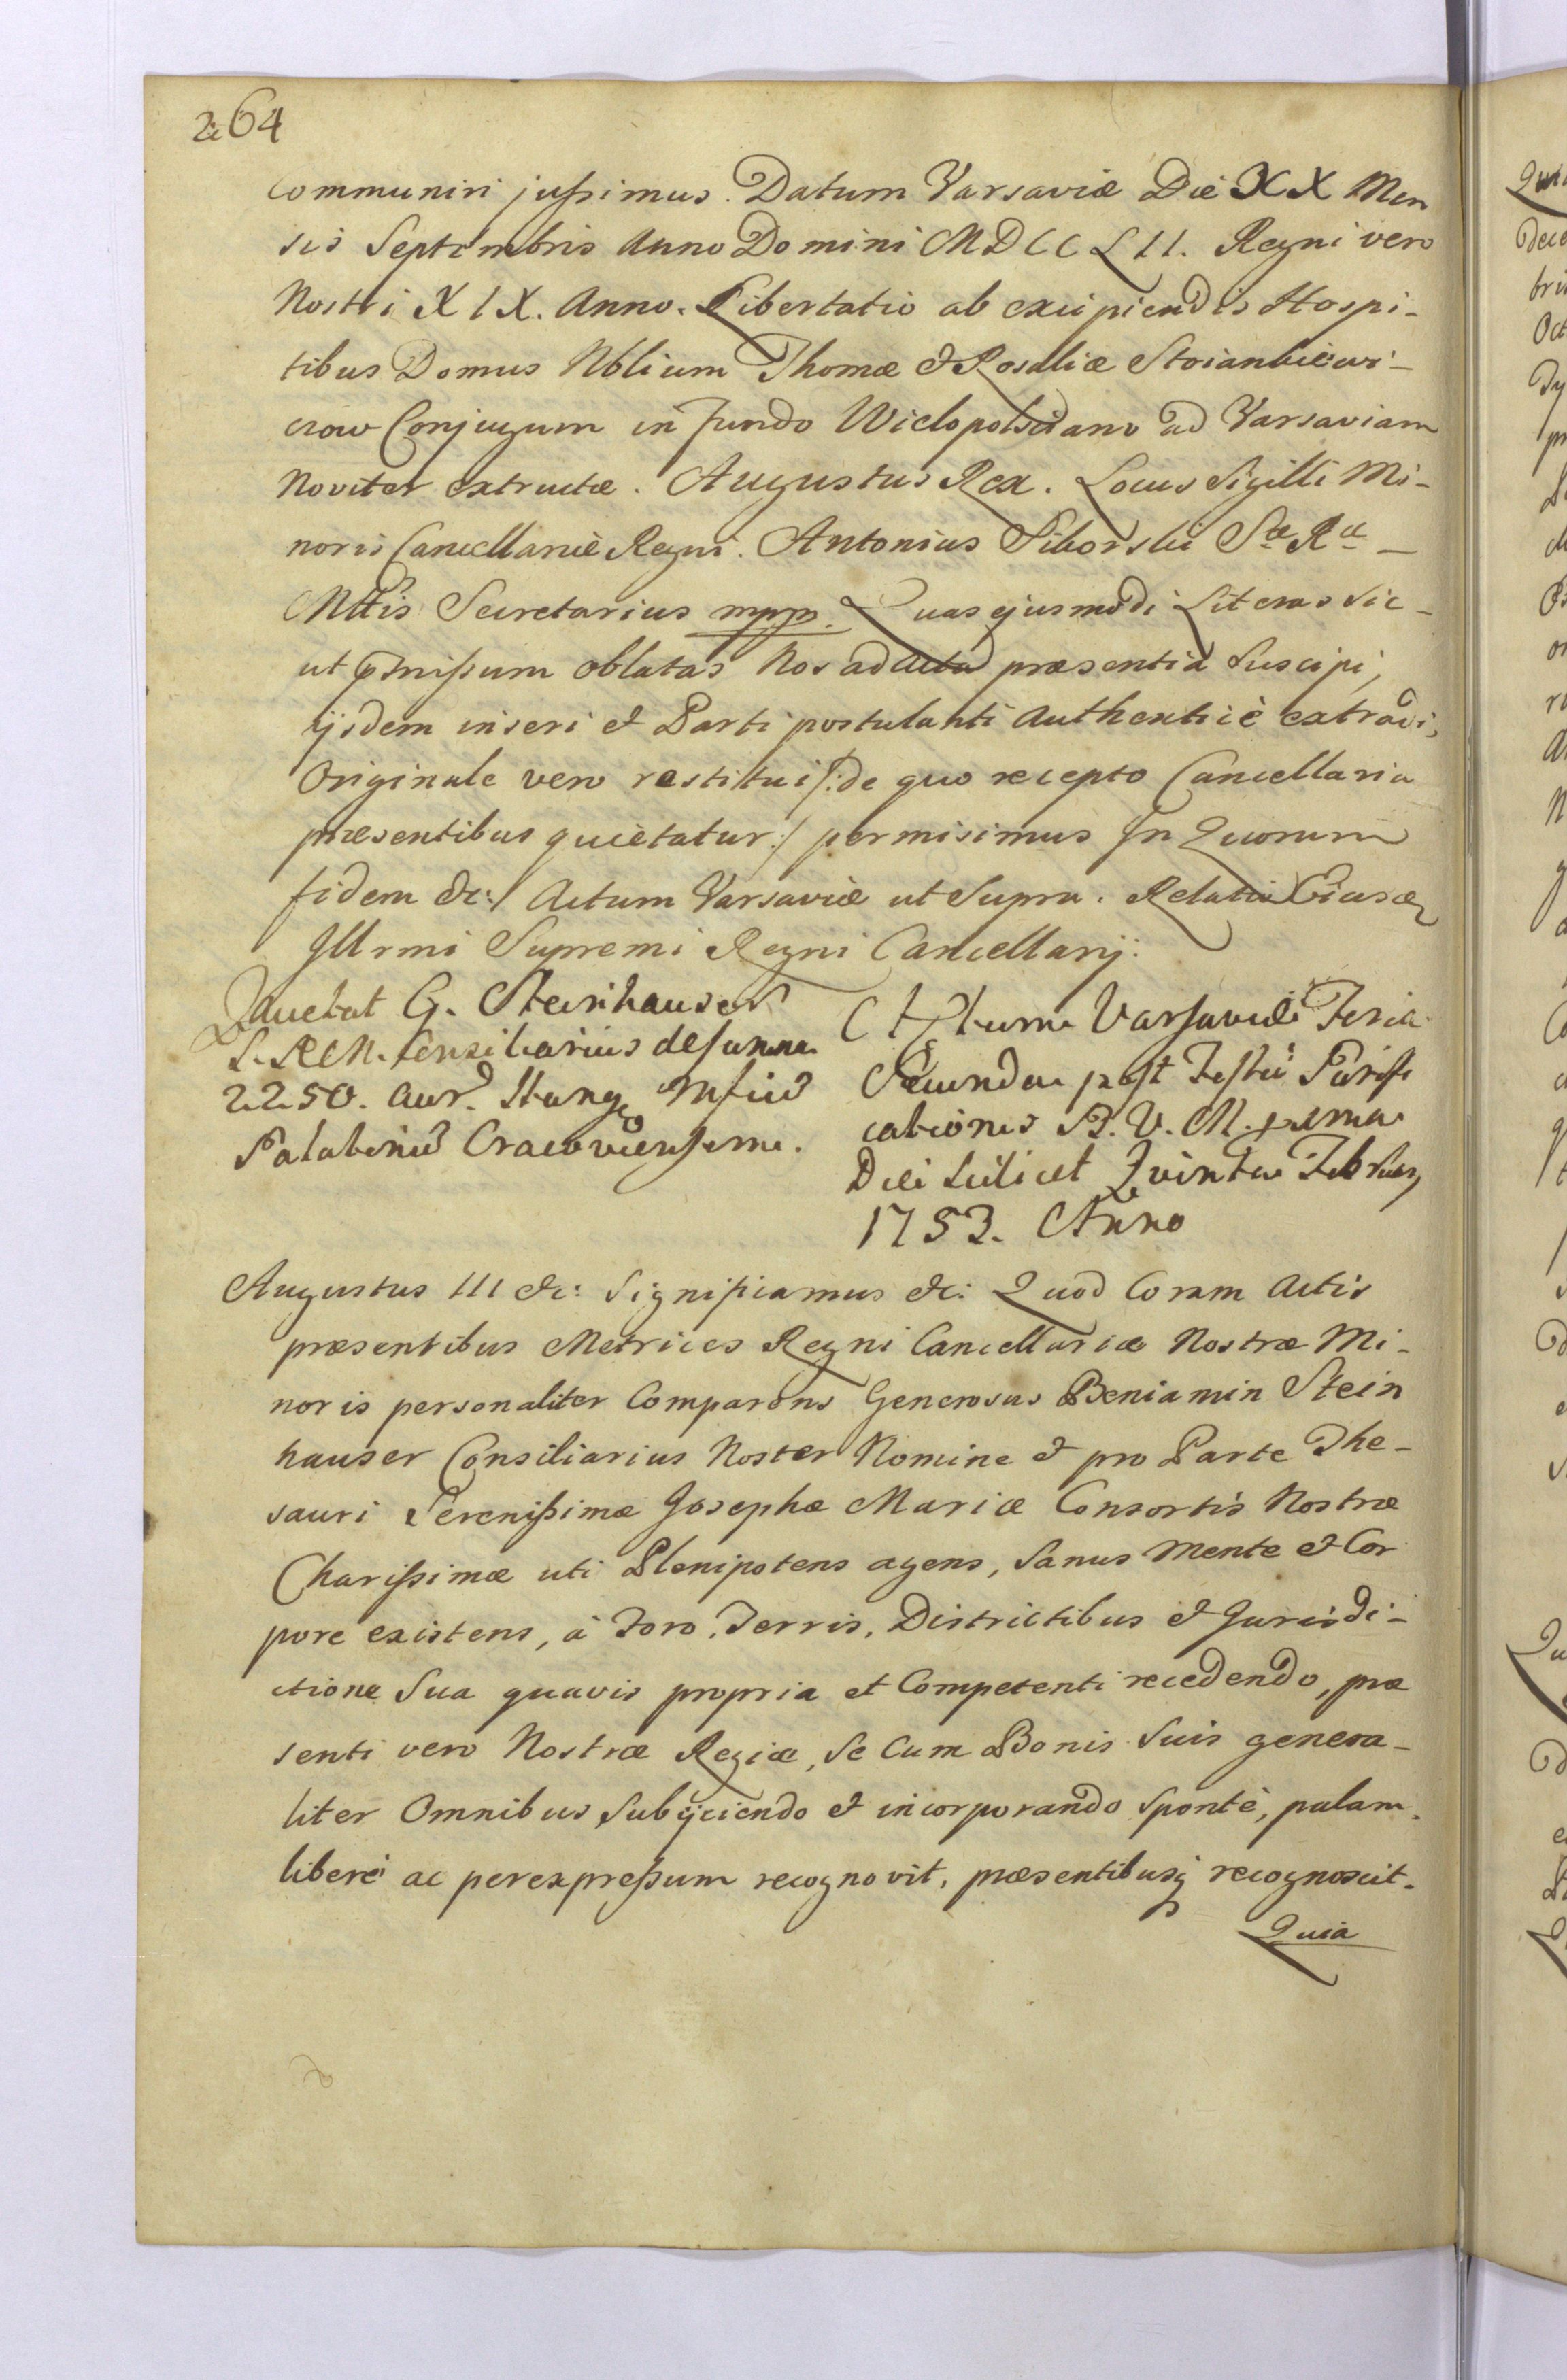 264
Communiri jussimus. Datum Varsaviæ Die XX Men
sis Septembris Anno Domini MDCCLII. Regni vero
Nostri XIX. Anno. Libertatio ab excipiendis Hospi-
tibus Domus Nblium Thomæ & Rosaliæ Stoiankiewi-
czow Conjugum in fundo Wielopolsciano ad Varsaviam
Noviter extructæ. Augustus Rex. Locus Sigilli Mi-
noris Cancellariæ Regni. Antonius Sikorski Sæ Ræ
Mttis Secretarius mpp. Quas ejusmodi Literas Sic-
ut pmissum oblatas Nos ad Acta præsentia Suscipi,
ijsdem inseri & Parti postulanti Authenticè extradi,
Originale vero restitui /: de quo recepto Cancellaria
præsentibus quietatur :/ permisimus In Quorum
fidem &c:/ Actum Varsaviæ ut Supra. Relatio
Illrmi Supremi Regni Cancellarij.
Quietat G. Steinhauser
S. R. M. Consiliarius de Summa
2250. Aur. Hung Mficum
Palatinum Cracoviensem.
Actum Varsaviæ Feria
Secunda post Festum Purifi
cationis B. V. M. pxima
Die Scilicet Quinta Februarij
1753. Anno
Augustus III &c: Significamus &c: Quod Coram Actis
præsentibus Metrices Regni Cancellariæ Nostræ Mi-
noris personaliter Comparens Generosus Beniamin Stein
hauser Consiliarius Noster Nomine & pro Parte The-
sauri Serenissimæ Josephæ Mariæ Consortis Nostræ
Charissimæ uti Plenipotens agens, Sanus Mente & Cor
pore existens, à Foro, Terris, Districtibus & Jurisdi-
ctione Sua quavis propria et Competenti recedendo, præ
senti vero Nostræ Regiæ, Se Cum Bonis Suis genera-
liter Omnibus Subijciendo & incorporando Spontè, palam
liberè ac per expressum recognovit, præsentibusq recognoscit.
Quia